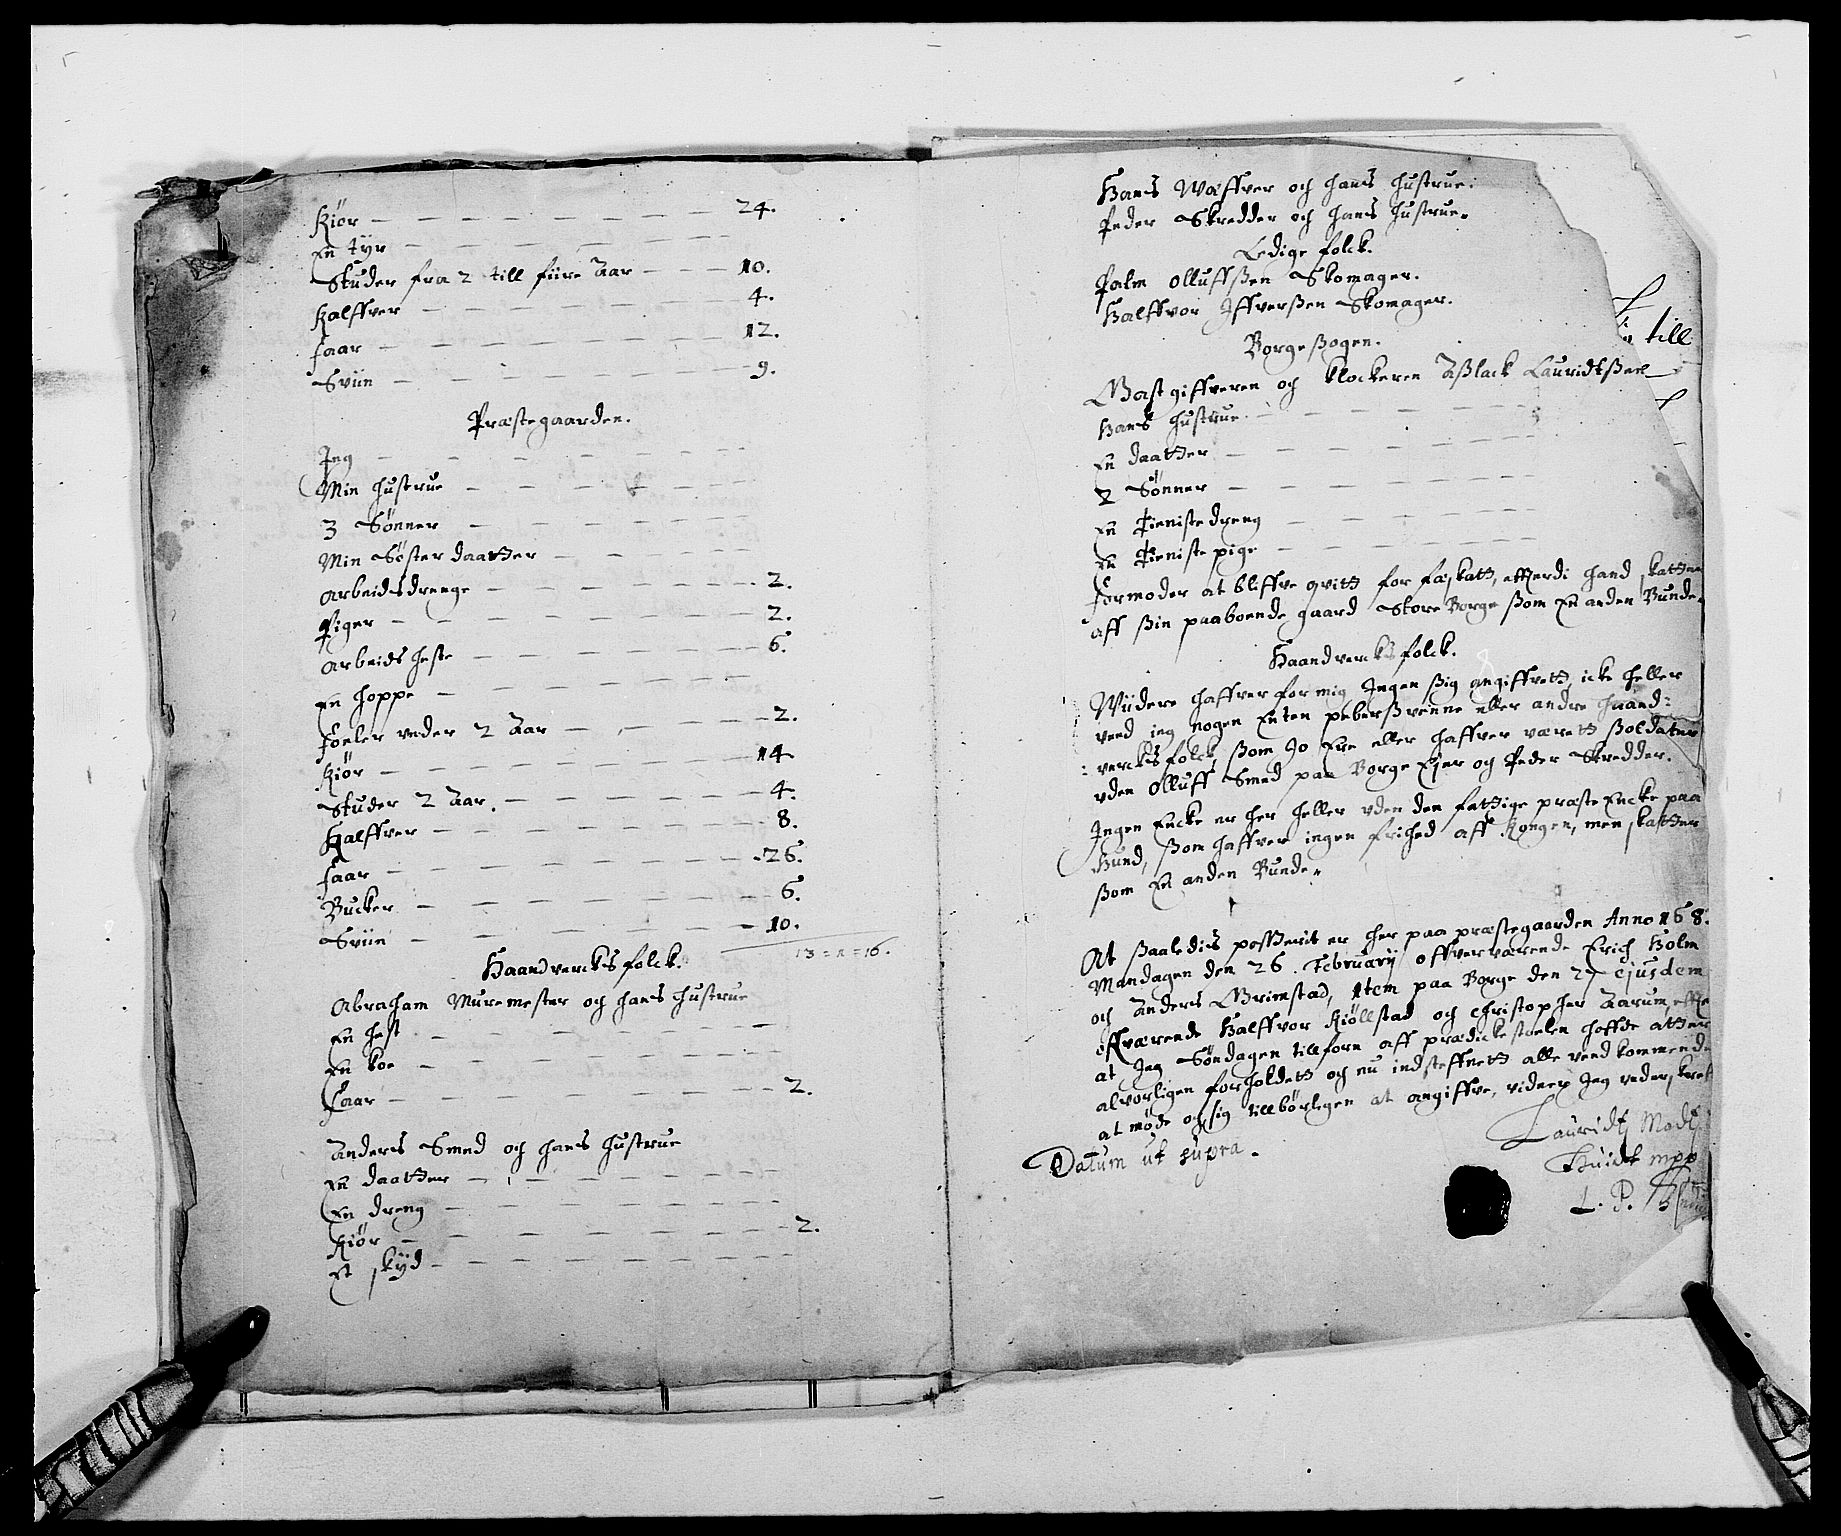 Kiør — — — — — — — — — 24.
En tyr — — — — — — —
Studer fra 2 till fiire Aar — — — 10.
Kalffver — — — — — — — 4.
Faar — — — — — — — 12.
Sviin — — — — — — — 9.
Præstegaarden.
Jeg — — — — — — —
Min hustrue — — — — — —
3 Sønner — — — — — —
Min Søster daatter — — — — —
Arbeidsdrenge — — — — — — 2.
Piger — — — — — — — 2.
Arbeids heste — — — — — — 6.
En hoppe — — — — — —
Foeler under 2 Aar — — — — 2.
Kiør — — — — — — — 14
Studer 2 Aar. — — — — — — 4.
Kalffver — — — — — — — 8.
Faar — — — — — — — 26.
Bucker — — — — — — — 6.
Sviin — — — — — — — 10.
Haandvercks folck. 13=1=16.
Abraham Muremester og hans hustrue
En hest — — — — — —
En koe — — — — — —
Faar — — — — — — — 2.
Anders Smed og hans hustrue
En daatter — — — — — —
En dreng — — — — — —
Kiør — — — — — — — 2.
Et skyd — — — — — —
Hans Wæffver och hans hustrue.
Peder Skredder och hans hustrue.
Ledige folck.
Palm Olluffsßen Skomager.
Halffvor Iffversßen Skomager.
Borge sogen.
till
Gastgiffveren og klockeren Aßlack Lauridtßen
Hans hustrue — — — — —
En daatter — — — — —
2 Sønner — — — — —
En Tieniste dreng — — — —
En Tieniste pige — — — —
Formoder at bliffve qvitt for fæskatt, efterdi hand skatter
aff ßin paaboende gaard Store Borge ßom En anden Bunde.
Haandvercks folck.
Wiidere haffver for mig Ingen ßig angiffvett, icke heller
veed jeg nogen Enten peberßvenne eller andre haand:
:vercks folck, ßom Jo Ere eller haffver værett ßoldater
uden Olluff Smed paa Borge Ejer og Peder Skredder.
Ingen Encke er her heller uden den fattige præste Encke paa
Hund, ßom haffver ingen frihed aff Kongen, men skatter
ßom En anden Bunde.
At ßaaledis passerit er her paa præstegaarden Anno 168.
Mandagen den 26. Februarij offververende Erich Holm
och Anders Grimstad, Item paa Borge den 27 ejusdem
offværende Halffvor Kiøllstad og Christopher Aarum, effte
at Jeg Søndagen tillforn aff prædickestoelen hoffde atter
alvorligen forholdett og nu indsteffnett alle vedkommende
at møde og sig tillbørligen at angiffve, vidner Jeg underskrefne
Datum ut supra.
Lauridtz Modtz
Huidt mpp
L. P.